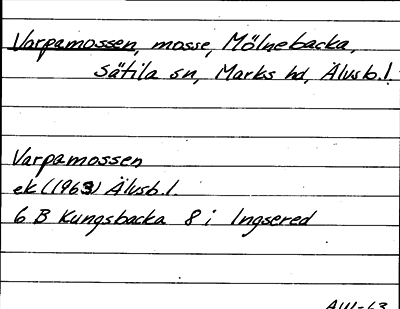 Varpamossen, mosse, Mölnebacka,
Sätila sn, Marks hd, Älvsb.l.
Varpamossen
ek (1963) Älvsb.l
6 B Kungsbacka 8 i Ingsered